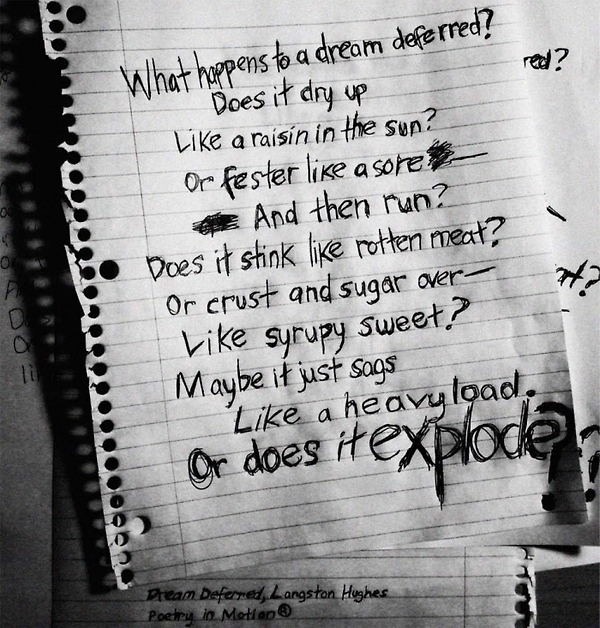 What happens to a dream deferred?
red?
Does it dry up
Like a raisin in the sun?
Or fester like a sore—
And then run?
Does it stink like rotten meat?
Or crust and sugar over—
Like syrupy sweet?
Maybe it just sags
Like a heavy load.
Or does it explode?
Dream Deferred, Langston Hughes
Poetry in Motion®